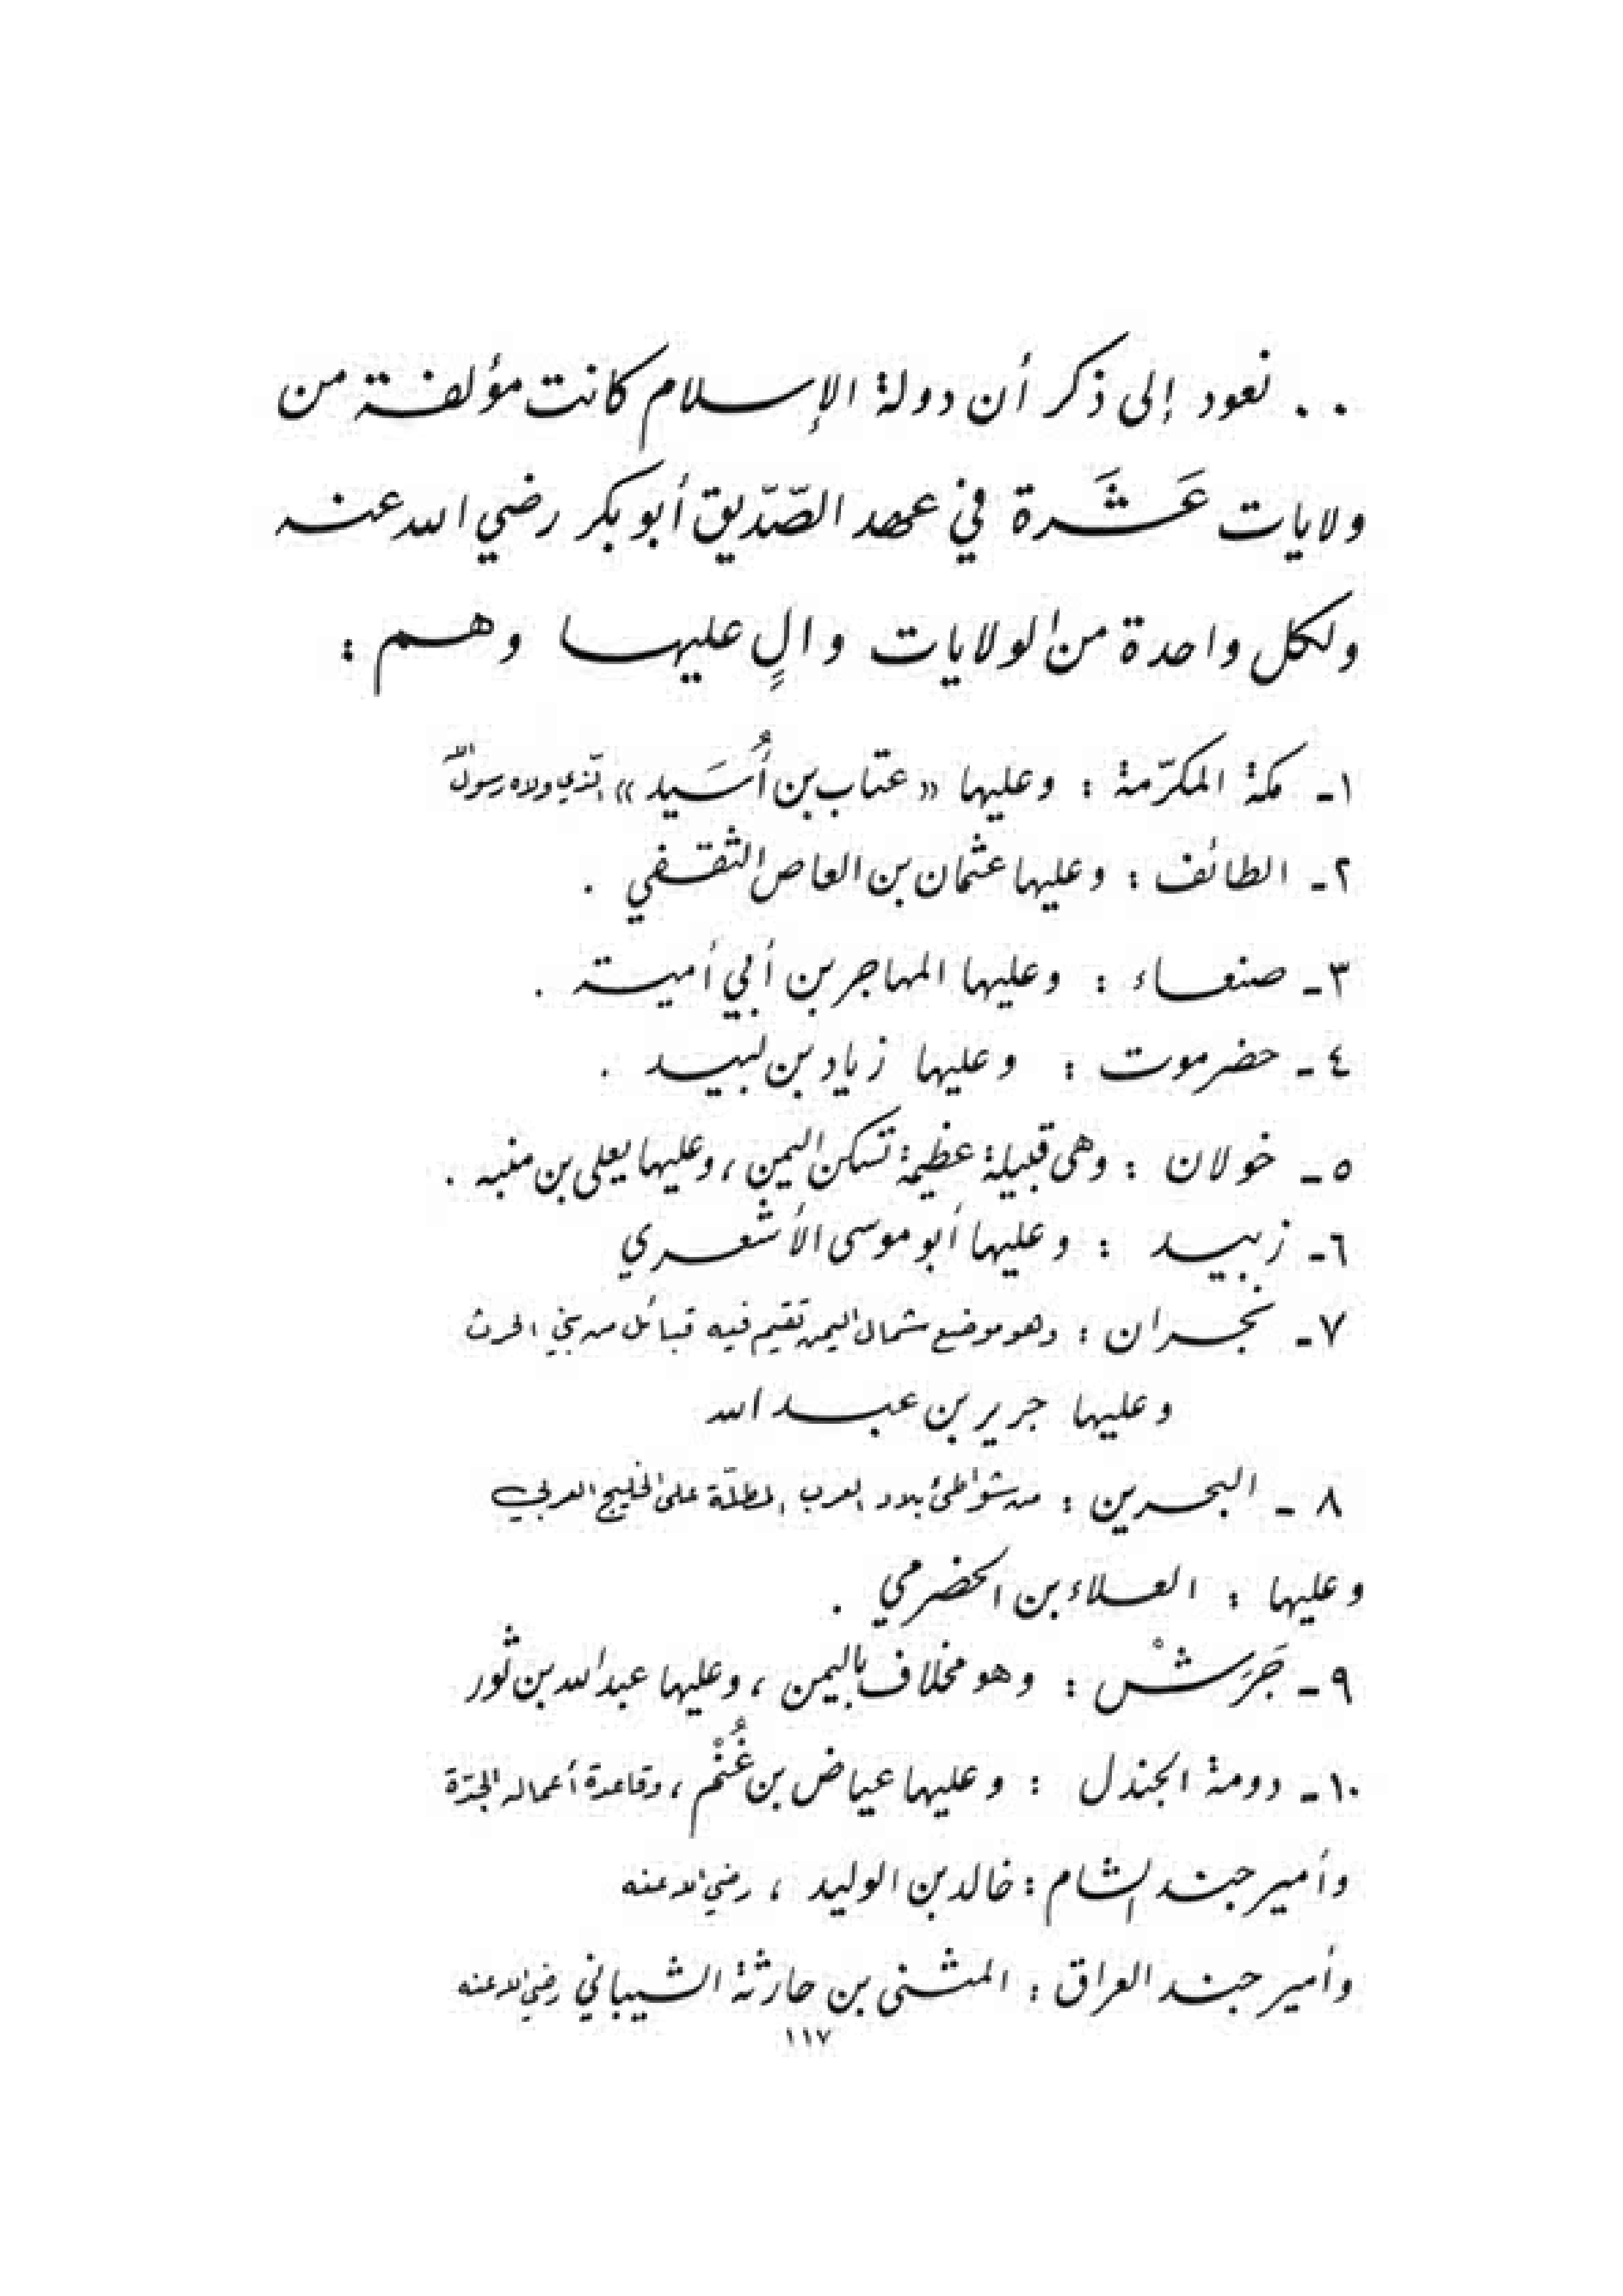 .. نعود إلى ذكر أن دولة الإسلام كانت مؤلفة من
ولايات عَشَرة في عهد الصّدّيق أبو بكر رضي الله عنه
ولكل واحدة من الولايات والٍ عليها وهم :
١- مكة المكرّمة : وعليها « عتاب بن أُسَيد » الذي ولاه رسول الله
٢- الطائف : وعليها عثمان بن العاص الثقفي .
٣- صنعاء : وعليها المهاجر بن أبي أمية .
٤- حضرموت : وعليها زياد بن لبيد .
٥- خولان : وهي قبيلة عظيمة تسكن اليمن ، وعليها يعلى بن منبه .
٦- زبيد : وعليها أبو موسى الأشعري
٧- نجران : وهو موضع شمال اليمن تقيم فيه قبائل من بني الحرث
وعليها جرير بن عبد الله
٨- البحرين : من شواطئ بلاد العرب المطلّة على الخليج العربي
وعليها : العلاء بن الحضرمي .
٩- جَرَشْ : وهو مخلاف باليمن ، وعليها عبد الله بن ثور
١٠- دومة الجندل : وعليها عياض بن غُنْم ، وقاعدة أعماله الجدّة
وأمير جند الشام : خالد بن الوليد ، رضي الله عنه
وأمير جند العراق : المثنى بن حارثة الشيباني رضي الله عنه
١١٧